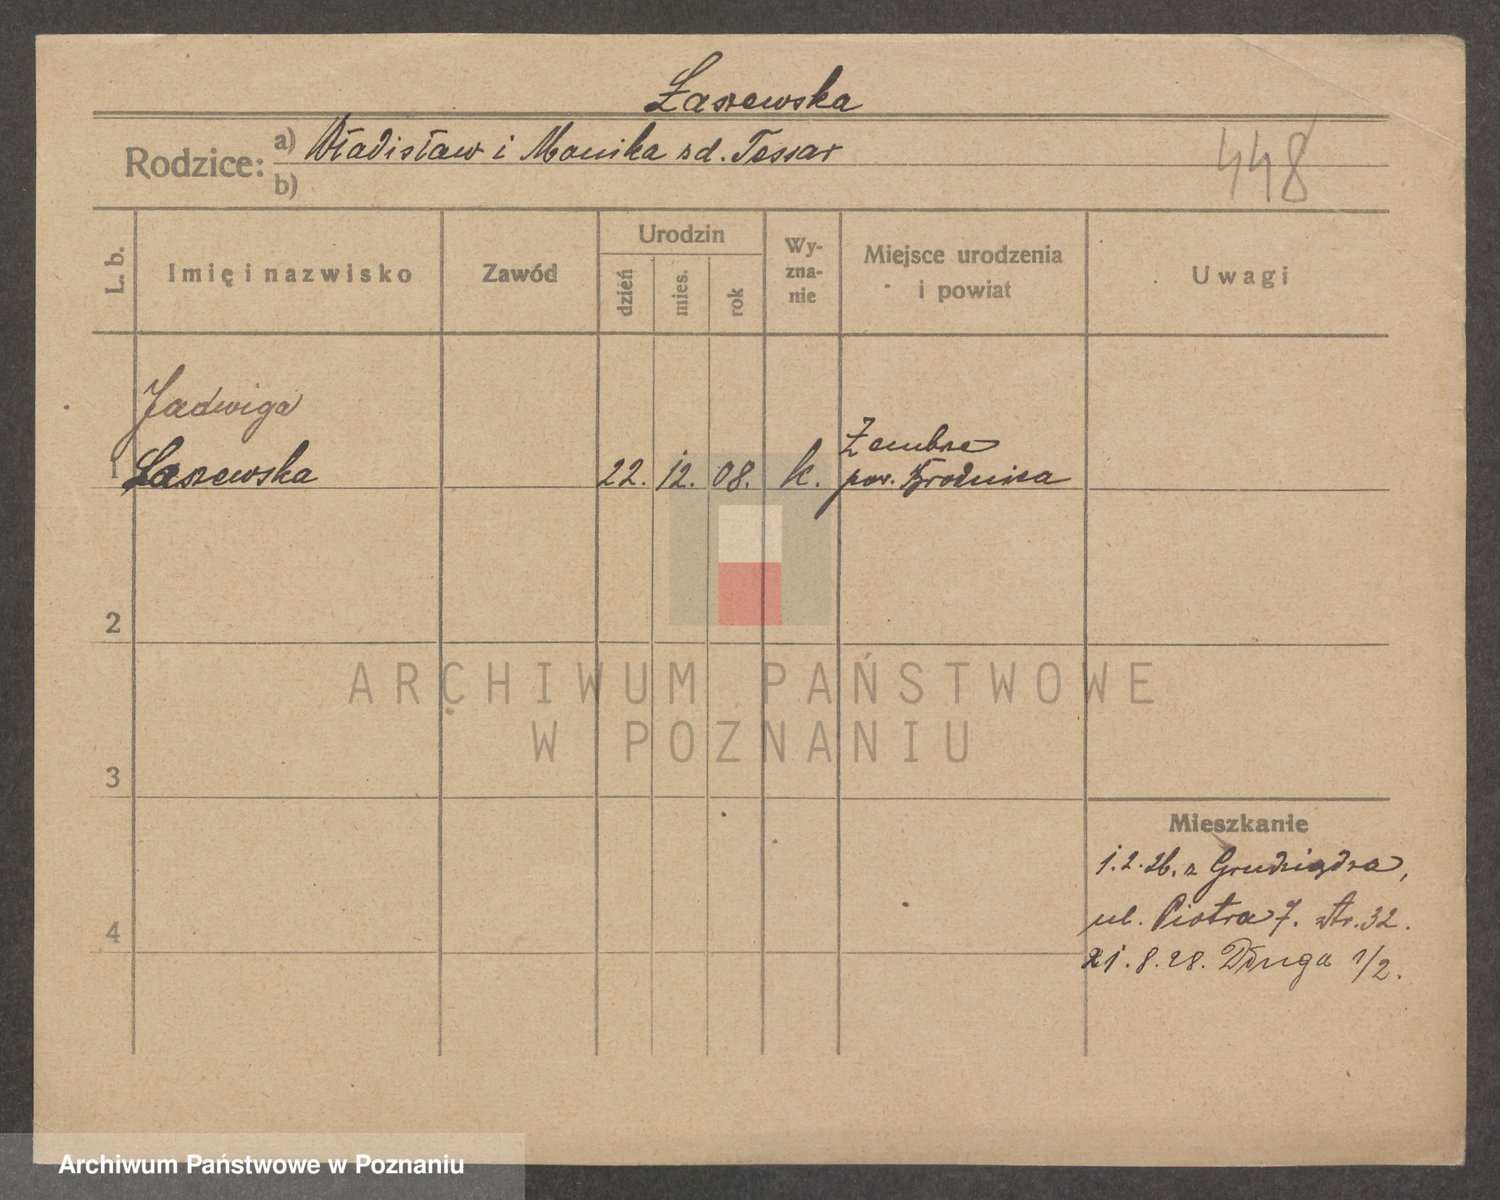 Łaszewska
Rodzice:
a) Władisław i Monika zd. Tessar
b)
448
L. b.
Imię i nazwisko
Zawód
Urodzin
dzień
mies.
rok
Wy-
zna-
nie
Miejsce urodzenia
i powiat
Uwagi
Jadwiga
1 Łaszewska 22. 12. 08. k.
Zembrze
pow. Brodnica
2
3
4
ARCHIWUM PAŃSTWOWE
W POZNANIU
Mieszkanie
1.2.26. z Grudziądza,
ul. Piotra 7. Str. 32.
21.8.28. Długa 1/2.
Archiwum Państwowe w Poznaniu